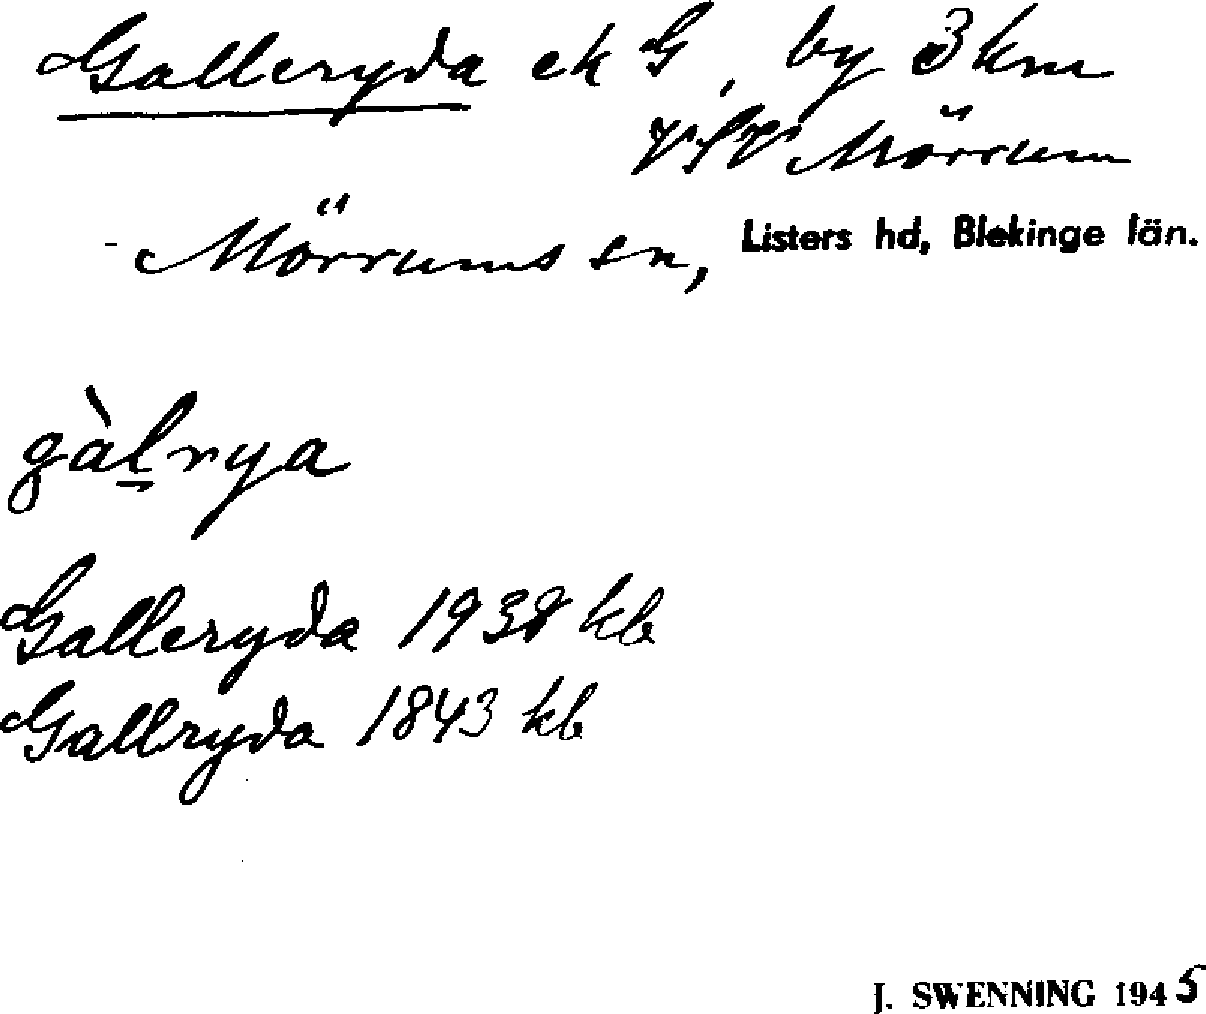 Galleryda ek G, by 3 km
VSV Mörrum
- Mörrums sn, Listers hd, Blekinge län.
gàl̲rya
Galleryda 1938 kb
Gallryda 1843 kb
J. SWENNING 1945